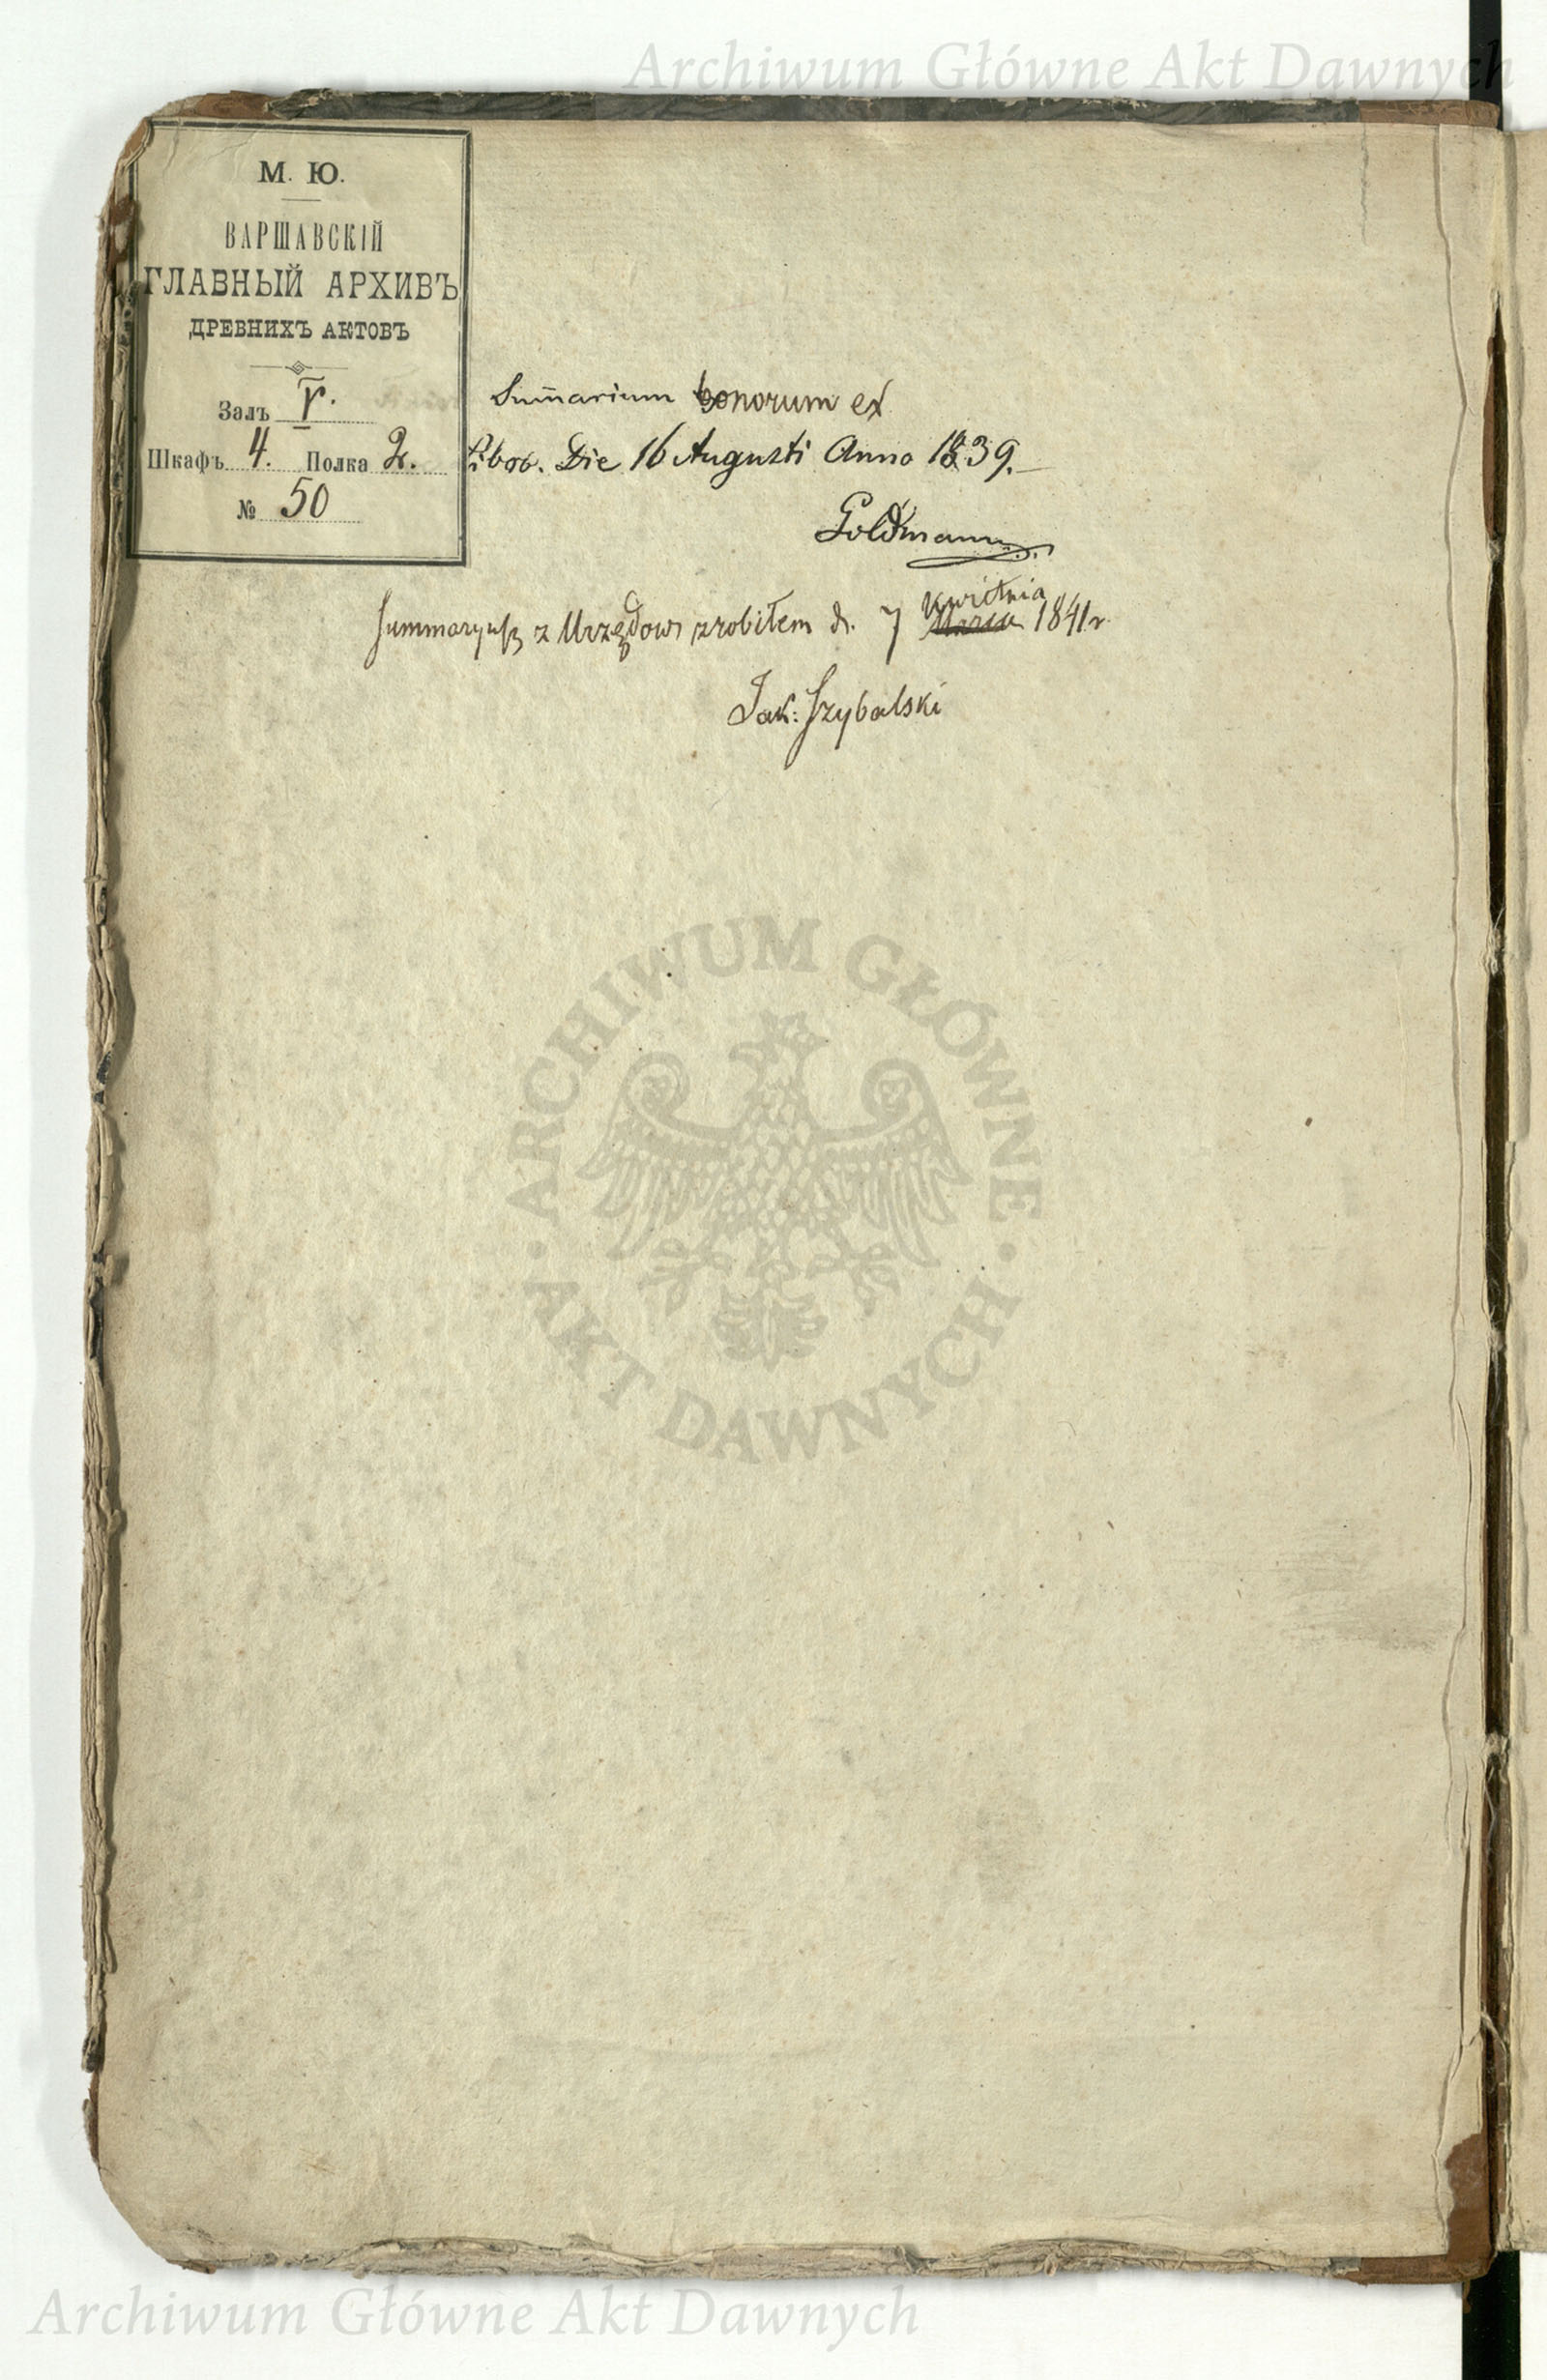 Archiwum Główne Akt Dawnych
М. Ю.
ВАРШАВСКІЙ
ГЛАВНЫЙ АРХИВЪ
ДРЕВНИХЪ АКТОВЪ
Залъ V.
Шкафъ 4. Полка 2.
№ 50
Sum̄arium bonorum ex
Die 16 Augusti Anno 1839.
Goldmann
Summaryusz z Urzędow zrobiłem d. 7 kwietnia 1841 r.
Jak: Szybalski
ARCHIWUM GŁÓWNE
AKT DAWNYCH
Archiwum Główne Akt Dawnych